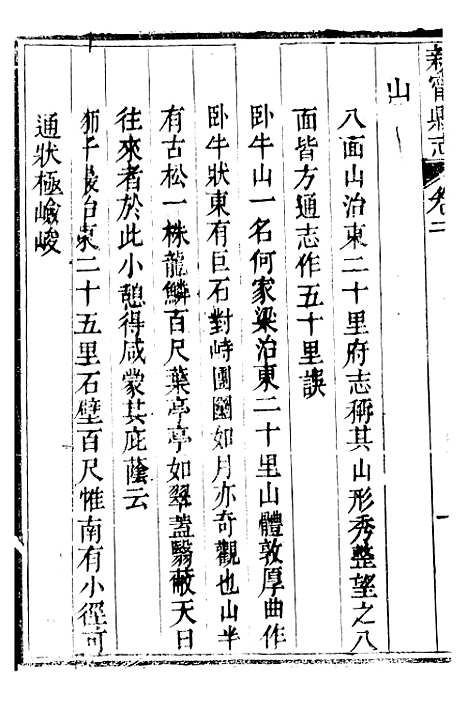 新甯縣志 卷二
山
八面山治東二十里府志稱其山形秀整望之八
面皆方通志作五十里誤
臥牛山一名何家梁治東二十里山體敦厚曲作
臥牛狀東有巨石對峙團圞如月亦奇觀也山半
有古松一株龍鱗百尺葉亭亭如翠蓋翳蔽天日
往來者於此小憩得咸蒙其庇蔭云
獅子巖治東二十五里石壁百尺惟南有小徑可
通狀極嶮峻